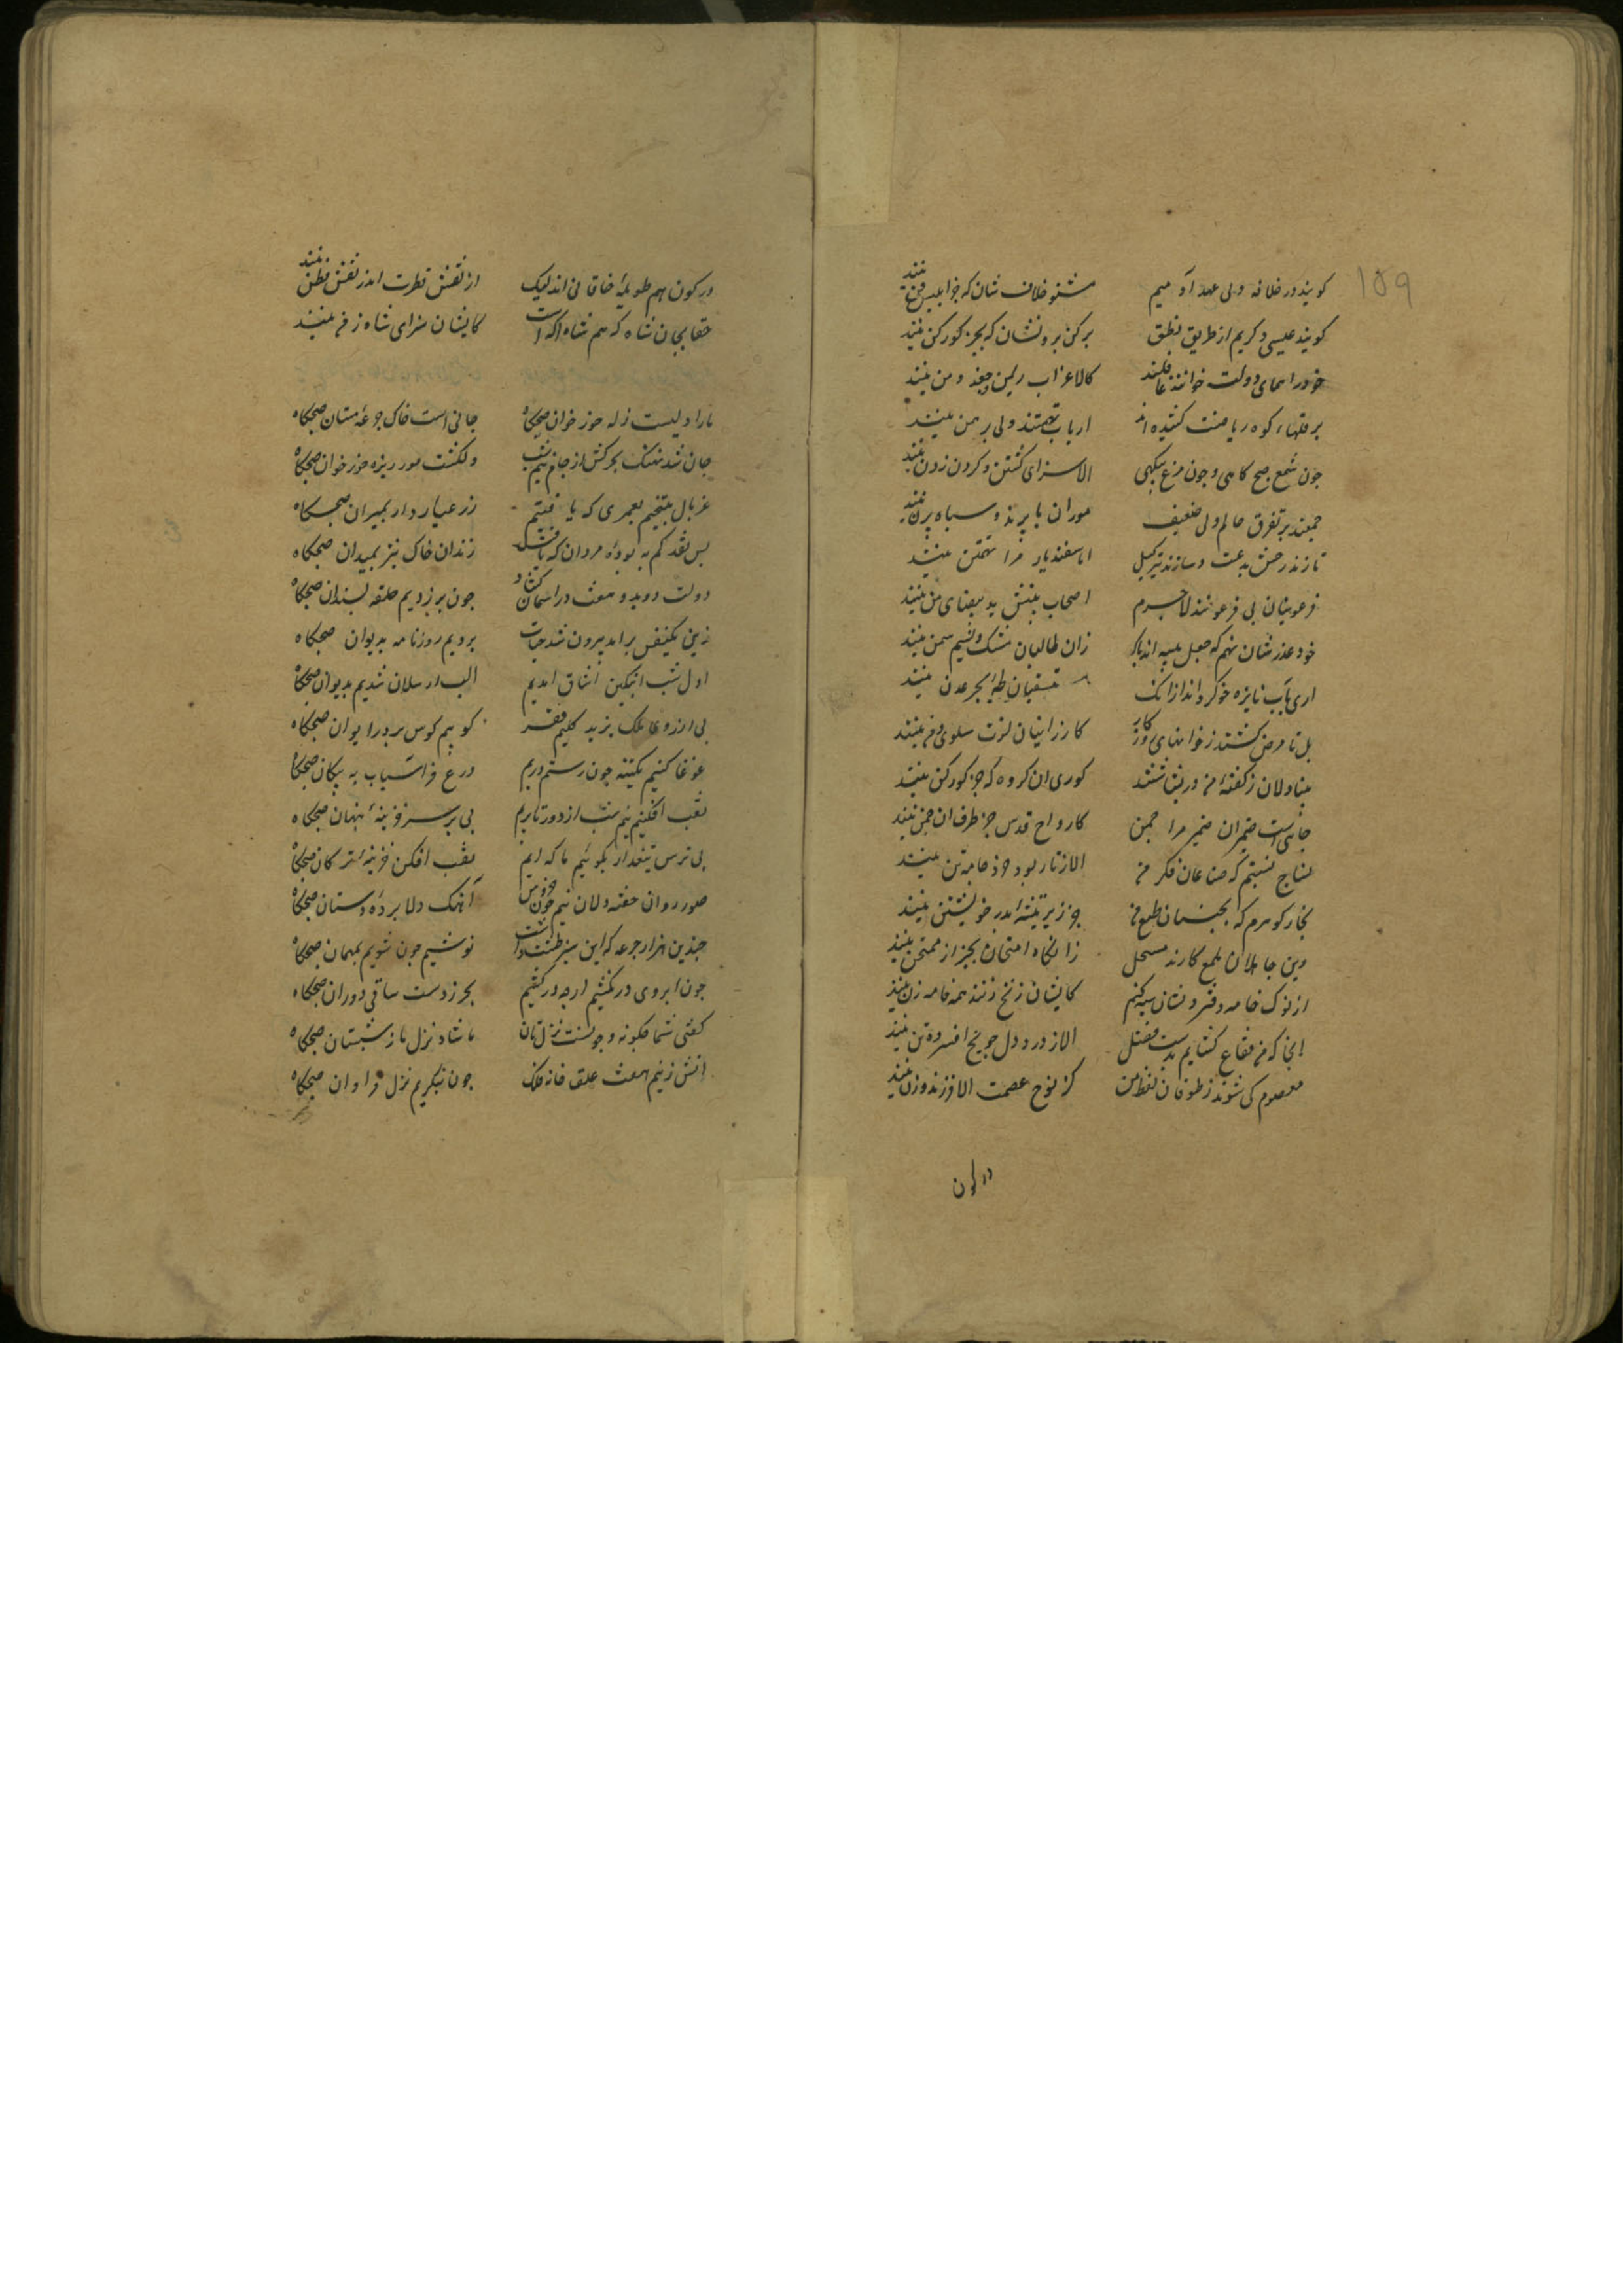 ۱۵۹
کویند در خلافه ولی عهد آدمیم مشنو خلاف شان که جز ابلیس فن نیند
کویند عیسی دکریم از طریق نطق برکن بروتشان که بجز کور کن نیند
خود را همای دولت خوانند غافلند کالا غراب ریمن و جغد دمن نیند
بر قلهاء کوه ریاضت کشیده اند ارباب تهمتند ولی برهمن نیند
جون شمع صبح کاهی و جون مرغ بیکهی الا سزای کشتن و کردن زدن نیند
جمعند بر تفرق عالم ولی ضعیف موران با پرند و سپاه پرن نیند
تازند رخش بدعت و سازند تیر کید اما سفندیار مرا تهمتن نیند
فرعونیان بی فر عونند لاجرم اصحاب بینش ید بیضای من نیند
خود عذرشان نهم که جعل پیشه اند پاک زان طالبان مشک و نسیم سمن نیند
اری بآب نایزه خو کرده اند از انک مستسقیان لجه بحر عدن نیند
بل تا مرض کشند ز خوانهای بد کوار کارزانیان لذت سلوی و من نیند
بینادلان ز کفته من در بشاشتند کوری ان کروه که جز کور کن نیند
جائی است ضیمران ضمیر مرا جمن کارواح قدس جز طرف ان جمن نیند
نساج نسبتم که صناعان فکر من الا ز تار بود خرد جامه تن نیند
نجار کوهرم که نجیبان طبع من جز زیر تیشه پدر خویشتن نیند
وین جاهلان ملمع کارند مستحل زان کاه امتحان بجز از ممتحن نیند
از نوک خامه دفتر دلشان سیه کنم کایشان زنخ زنند همه خامه زن نیند
انجا که من فقاع کشایم بدست فضل الا ز درد دل جو یخ افسرده تن نیند
معصوم کی شوند ز طوفان لفظ من کز نوح عصمت الا فرزند و زن نیند
در کون
در کون هم طویله خاقانی اند لیک از نقش فطرت اند ز نفس فطن نیند
حقا بجان شاه که هم شاه اکه است کایشان سزای شاه ز من نیند
ما را دلیست زله خور خوان صبحکاه جانی است خاک جرعه مستان صبحکاه
جان شد نهنک بحر کش از جام نیم شب دل کشت مور ریزه خور خوان صبحکاه
غربال بیختیم بعمری که یافتیم زر عیار دار بمیزان صبحکاه
بس نقد کم به بوده مردان که یافتند زندان خاک نیز بمیدان صبحکاه
دولت دوید و هفت در آسمان کشاد جون بر زدیم حلقه بسندان صبحکاه
زین یکنفس بر امد بیرون شد حیات بردیم روزنامه بدیوان صبحکاه
اول شب ایتکین وشاق امدیم الب ارسلان شدیم بپایان صبحکاه
بی ارزو ملک بزیر کلیم فقر کوبیم کوس بر در ایوان صبحکاه
غوغا کنیم یکتنه جون رستم و دریم درع فراسیاب به پیکان صبحکاه
نقب افکنیم نیم شب از دور تا بریم پی بر سر خزینه پنهان صبحکاه
بی ترس تیغ دار بکوئیم ما که ایم نقب افکن خزینه ترکان صبحکاه
صور روان خفته دلان نیم جون خروس آهنک دان پرده دستان صبحکاه
جندین هزار جرعه که این سبز طشت داشت نوشیم جون شویم بمهمان صبحکاه
جون ابروی در نکشیم ارجه در کشیم بحر ز دست ساقی دوران صبحکاه
کفتی شما جکونه و جونست نزلتان ما شاد نزل ما ز شبستان صبحکاه
اتش زنیم هفت علف خانه فلک جون بنکریم نزل فراوان صبحکاه